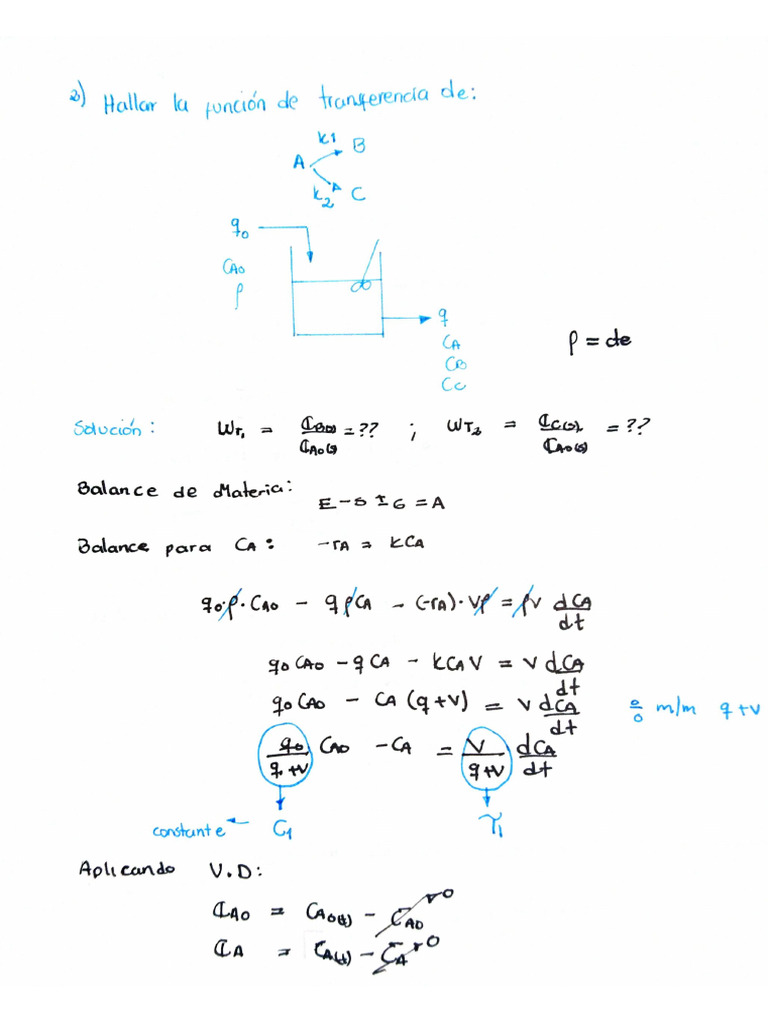 2) Hallar la función de transferencia de:
k1
A B
k2 C
q0
CA0
ρ
q
CA
CB
CC
ρ = cte
Solución: WT1 = CB(s)/CA0(s) = ?? ; WT2 = CC(s)/CA0(s) = ??
Balance de Materia: E - S ± G = A
Balance para CA: -rA = kCA
q0·ρ·CA0 - qρCA - (-rA)·Vρ = ρV dCA/dt
q0CA0 - qCA - kCAV = V dCA/dt
q0CA0 - CA(q+V) = V dCA/dt % m/m q+V
q0/(q+V) CA0 - CA = V/(q+V) dCA/dt
constante ← C1 τ1
Aplicando V.D:
CA0 = CA0(t) - CA0 0
CA = CA(t) - CA 0